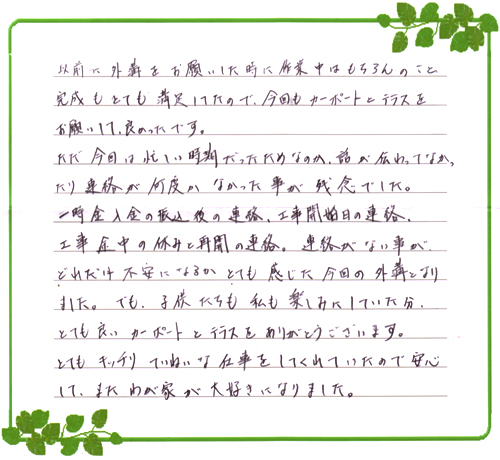 以前に外溝をお願いした時に作業中はもちろんのこと
完成もとても満足してたので、今回もカーポートとテラスを
お願いして、良かったです。
ただ今回は忙しい時期だったためなのか、話が伝わってなか、
たり連絡が何度かなかった事が残念でした。
一時金入金の振込後の連絡、工事開始日の連絡、
工事途中の休みと再開の連絡。連絡がない事が
どれだけ不安になるかとても感じた今回の外溝となり
ました。でも、子供たちも私も楽しみにしていた分、
とても良いカーポートとテラスをありがとうございます。
とてもキッチリていねいな仕事をしてくれていたので安心
して、またわが家が大好きになりました。